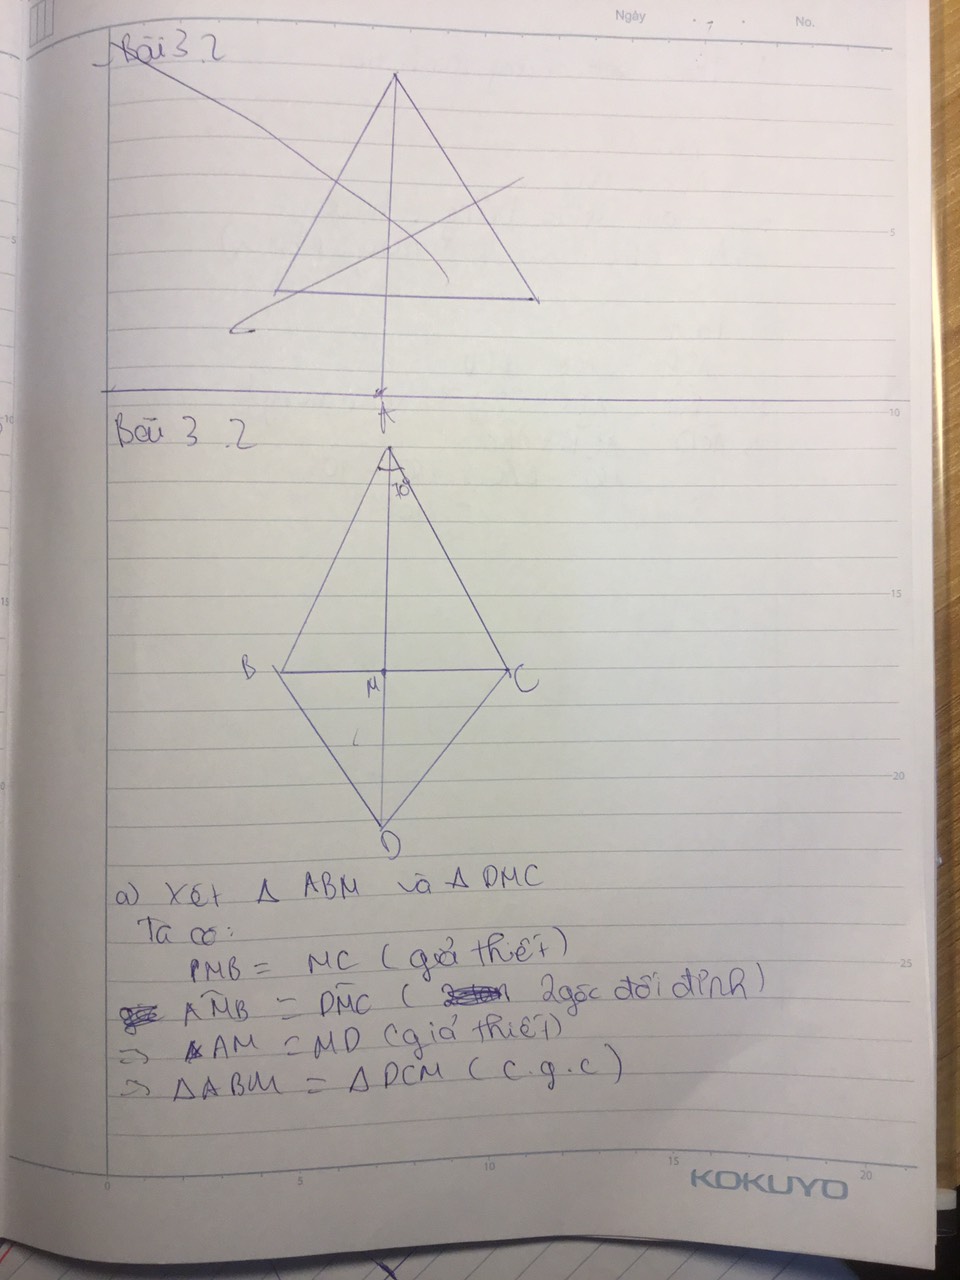 Ngày . . No.
Bài 3.2
5
10
A
Bài 3.2
70°
15
B
M
C
20
D
a) Xét Δ ABM và Δ DMC
Ta có:
MB = MC (giả thiết)
25
AMB = DMC ( 2 góc đối đỉnh)
=> AM = MD (giả thiết)
=> ΔABM = ΔDCM (c.g.c)
0 5 10 15 20
KOKUYO